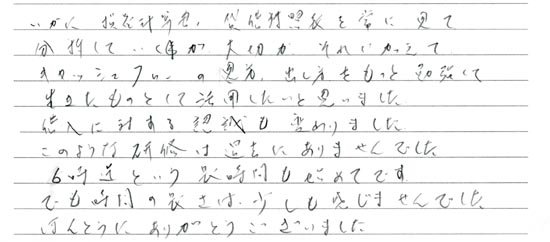 いかに 損益計算書、貸借対照表を常に見て
分析していく事が大切か、それにかえて
キャッシュフローの見方、出し方をもっと勉強して
生きたものとして活用したいと思いました
借入に対する認識も変わりました
このような研修は過去にありませんでした
6時迄という長時間も初めてです
でも時間の長さは、少しも感じませんでした
ほんとうにありがとうございました